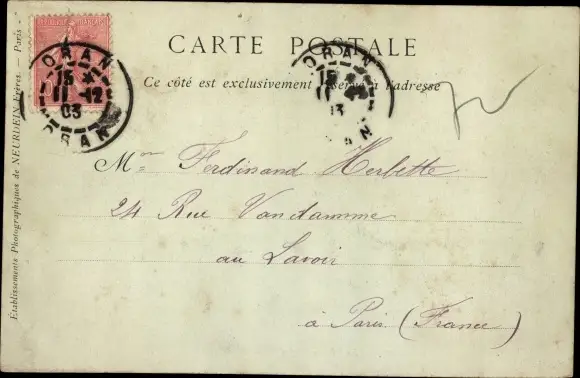 RÉPUBLIQUE FRANÇAISE
ORAN
15
11 12
03
ORAN
CARTE POSTALE
Ce côté est exclusivement réservé à l'adresse
ORAN
15
11
ORAN
Mon Ferdinand Herbette
24 Rue Vandamme
au Lavoir
à Paris (France)
Établissements Photographiques de NEURDEIN Frères. — Paris